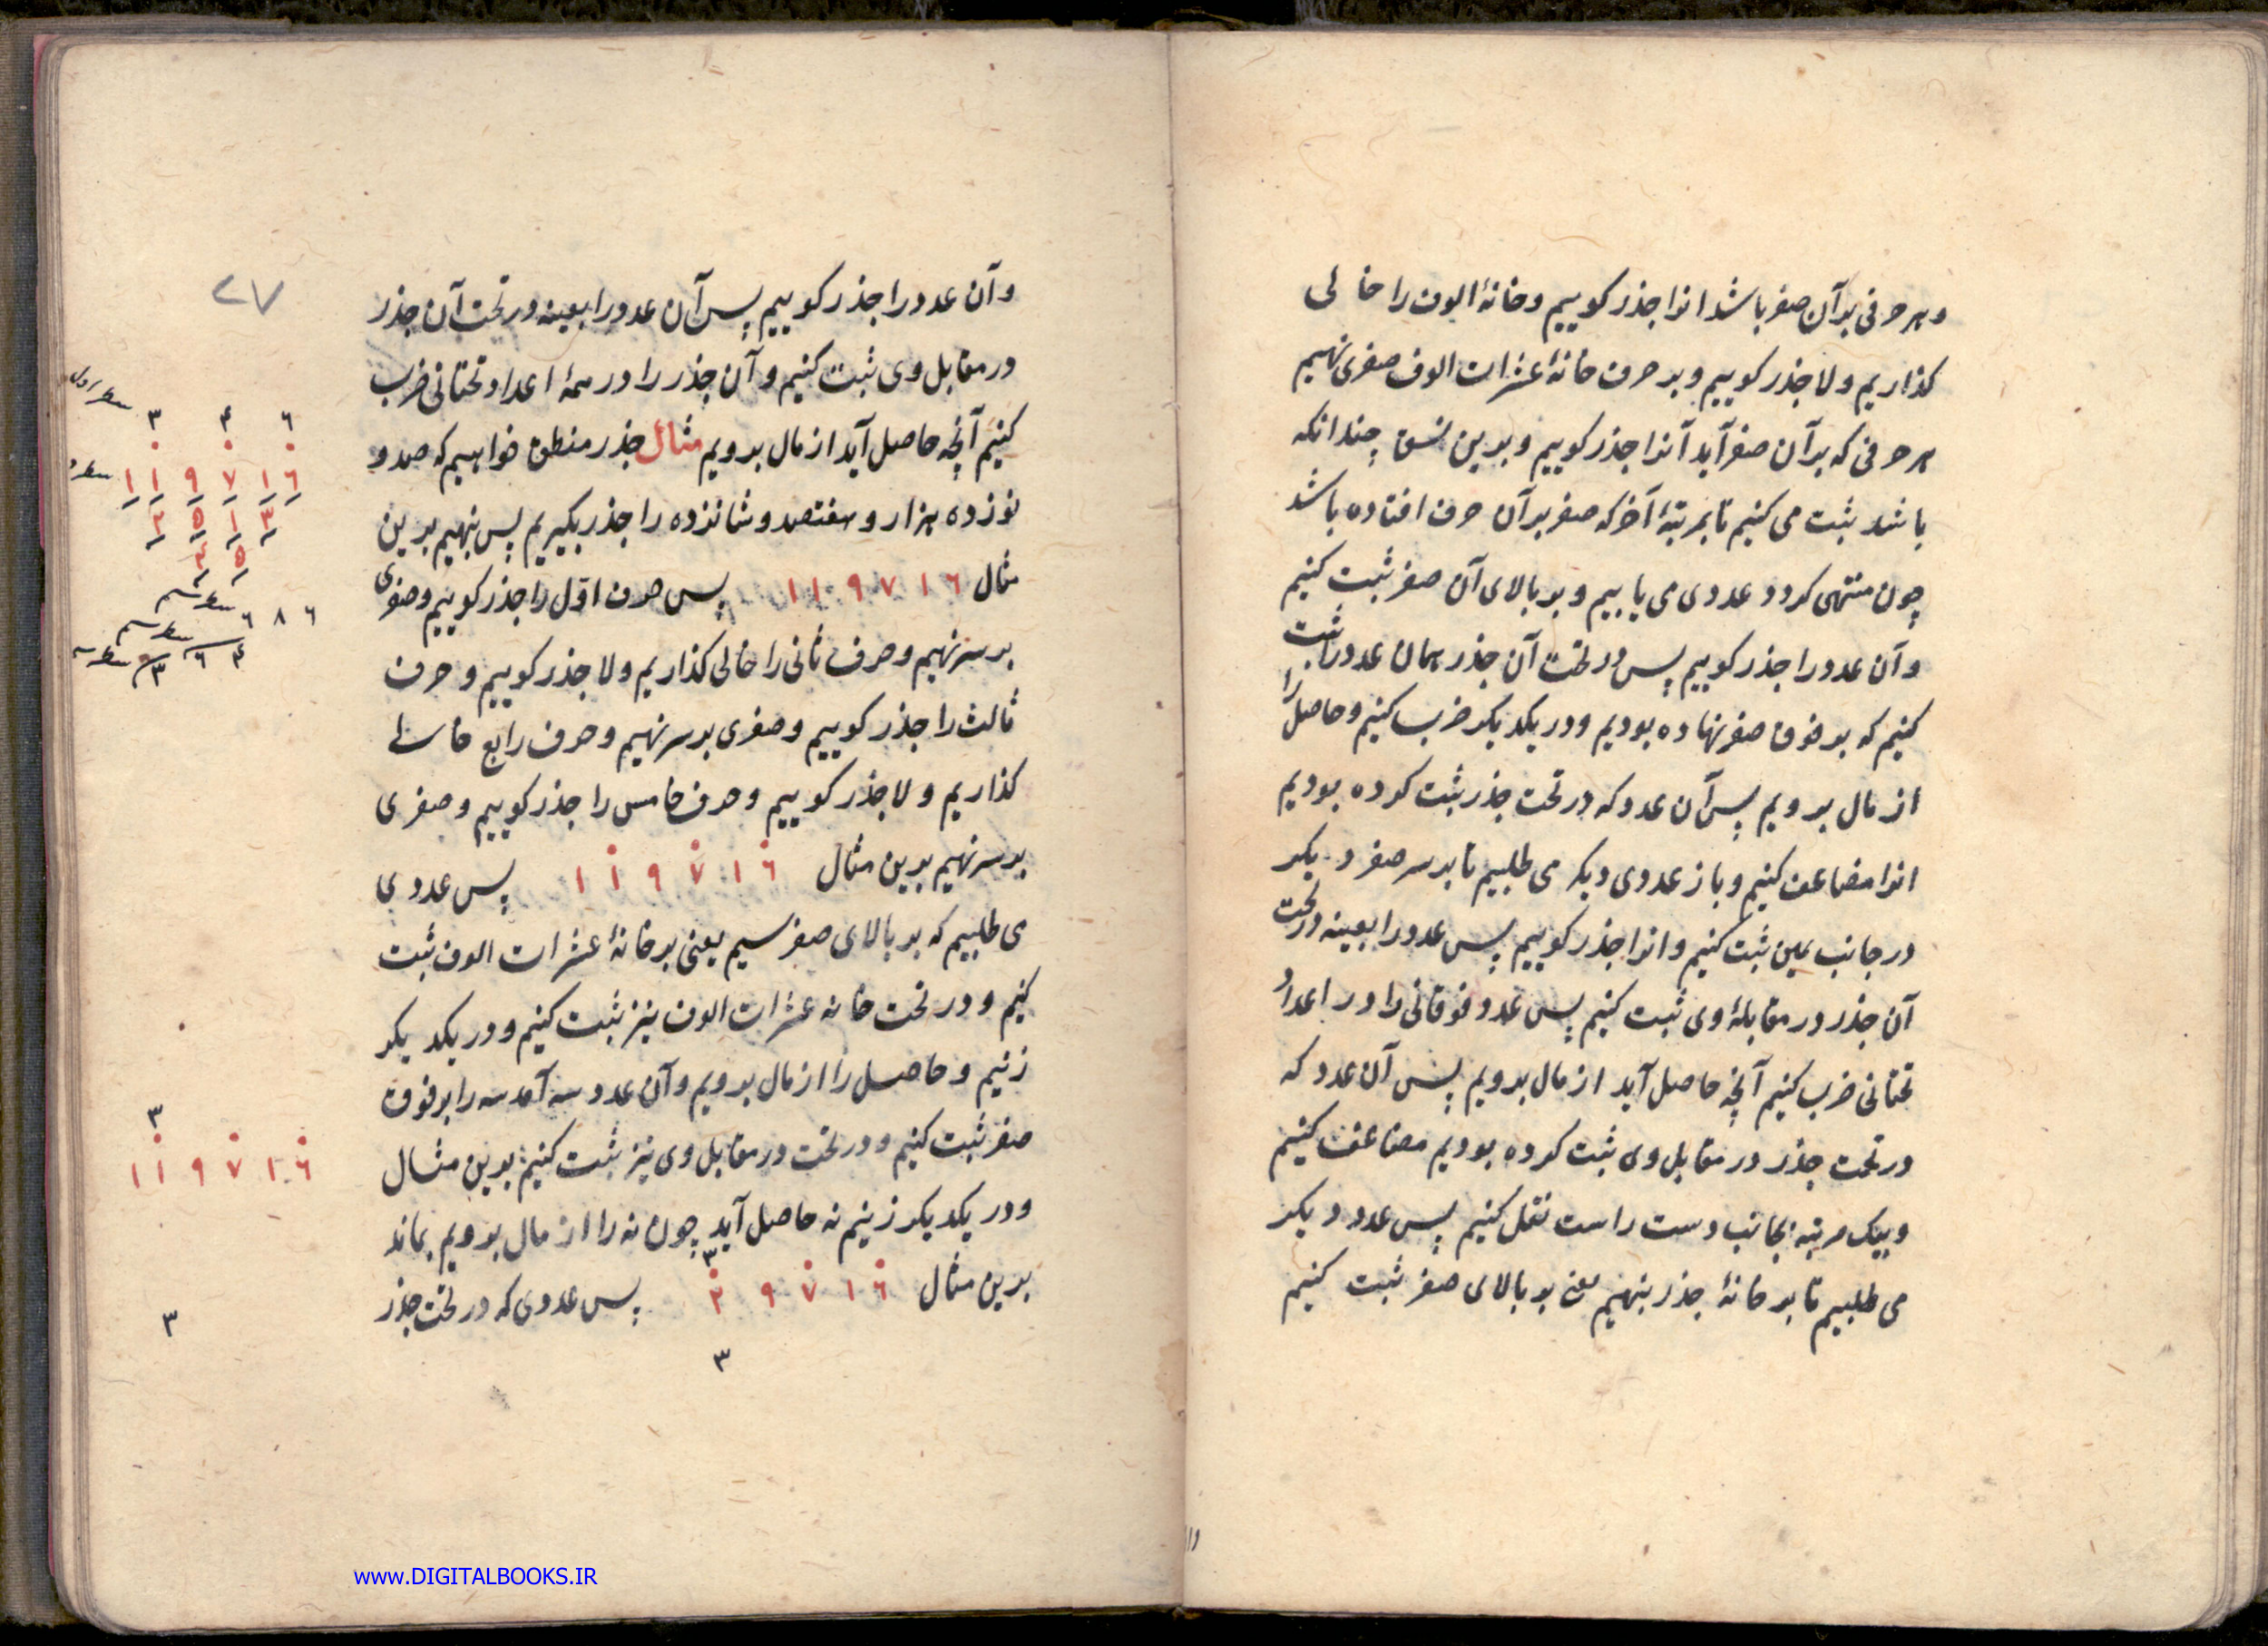 و هر حرفی بر آن صفر باشد انرا جذر کوییم و خانهٔ الوف را خالی
کذاریم و لا جذر کوییم و بر حرف خانهٔ عشرات الوف صفری نهیم
هر حرفی که بر آن صفر آید آنرا جذر کوییم و بدین نسق چندانکه
باشد ثبت می کنیم تا بمرتبهٔ آخر که صفر بر آن حرف افتاده باشد
چون منتهی کردد عددی می یابیم و بر بالای آن صفر ثبت کنیم
و آن عدد را جذر کوییم پس در تحت آن جذر همان عدد را ثبت
کنیم که بر فوق صفر نهاده بودیم و در یکدیکر ضرب کنیم و حاصل را
از مال برویم پس آن عدد که در تحت جذر ثبت کرده بودیم
انرا مضاعف کنیم و باز عددی دیکر می طلبیم تا بر سر صفر دیکر
در جانب یمین ثبت کنیم و انرا جذر کوییم پس عدد را بعینه در تحت
آن جذر در مقابلهٔ وی ثبت کنیم پس عدد فوقانی را در اعداد
تحتانی ضرب کنیم آنچه حاصل آید از مال برویم پس آن عدد که
در تحت جذر در مقابل وی ثبت کرده بودیم مضاعف کنیم
و بیک مرتبه بجانب دست راست نقل کنیم پس عدد دیکر
می طلبیم تا بر خانهٔ جذر بنهیم یعنی بر بالای صفر ثبت کنیم
۲۷
و آن عدد را جذر کوییم پس آن عدد را بعینه در تحت آن جذر
در مقابل وی ثبت کنیم و آن جذر را در همهٔ اعداد تحتانی ضرب
کنیم آنچه حاصل آید از مال برویم مثال جذر منطق خواهیم که صد و
نوزده هزار و هفتصد و شانزده را جذر بکیریم پس بنهیم بدین
مثال ۱۱۹۷۱۶ پس حرف اول را جذر کوییم و صفری
بر سر نهیم و حرف ثانی را خالی کذاریم و لا جذر کوییم و حرف
ثالث را جذر کوییم و صفری بر سر نهیم و حرف رابع خالی
کذاریم و لا جذر کوییم و حرف خامس را جذر کوییم و صفری
بر سر نهیم بدین مثال ۱۱۹۷۱۶ پس عددی
می طلبیم که بر بالای صفر سیم یعنی بر خانهٔ عشرات الوف ثبت
کنیم و در تحت خانه عشرات الوف نیز ثبت کنیم و در یکدیکر
زنیم و حاصل را از مال برویم و آن عدد سه آمد سه را بر فوق
صفر ثبت کنیم و در تحت در مقابل وی نیز ثبت کنیم بدین مثال
و در یکدیکر زنیم نه حاصل آید چون نه را از مال برویم بماند
بدین مثال ۲۹۷۱۶ پس عددی که در تحت جذر
۳
۳
سطر اول
۳ ۴ ۶
۱۱۹۷۱۶
۲ ۵ ۱ ۳
۳ ۵
۶ ۸ ۶
۶ ۴
۳
۳
۱۱۹۷۱۶
۳
www.DIGITALBOOKS.IR